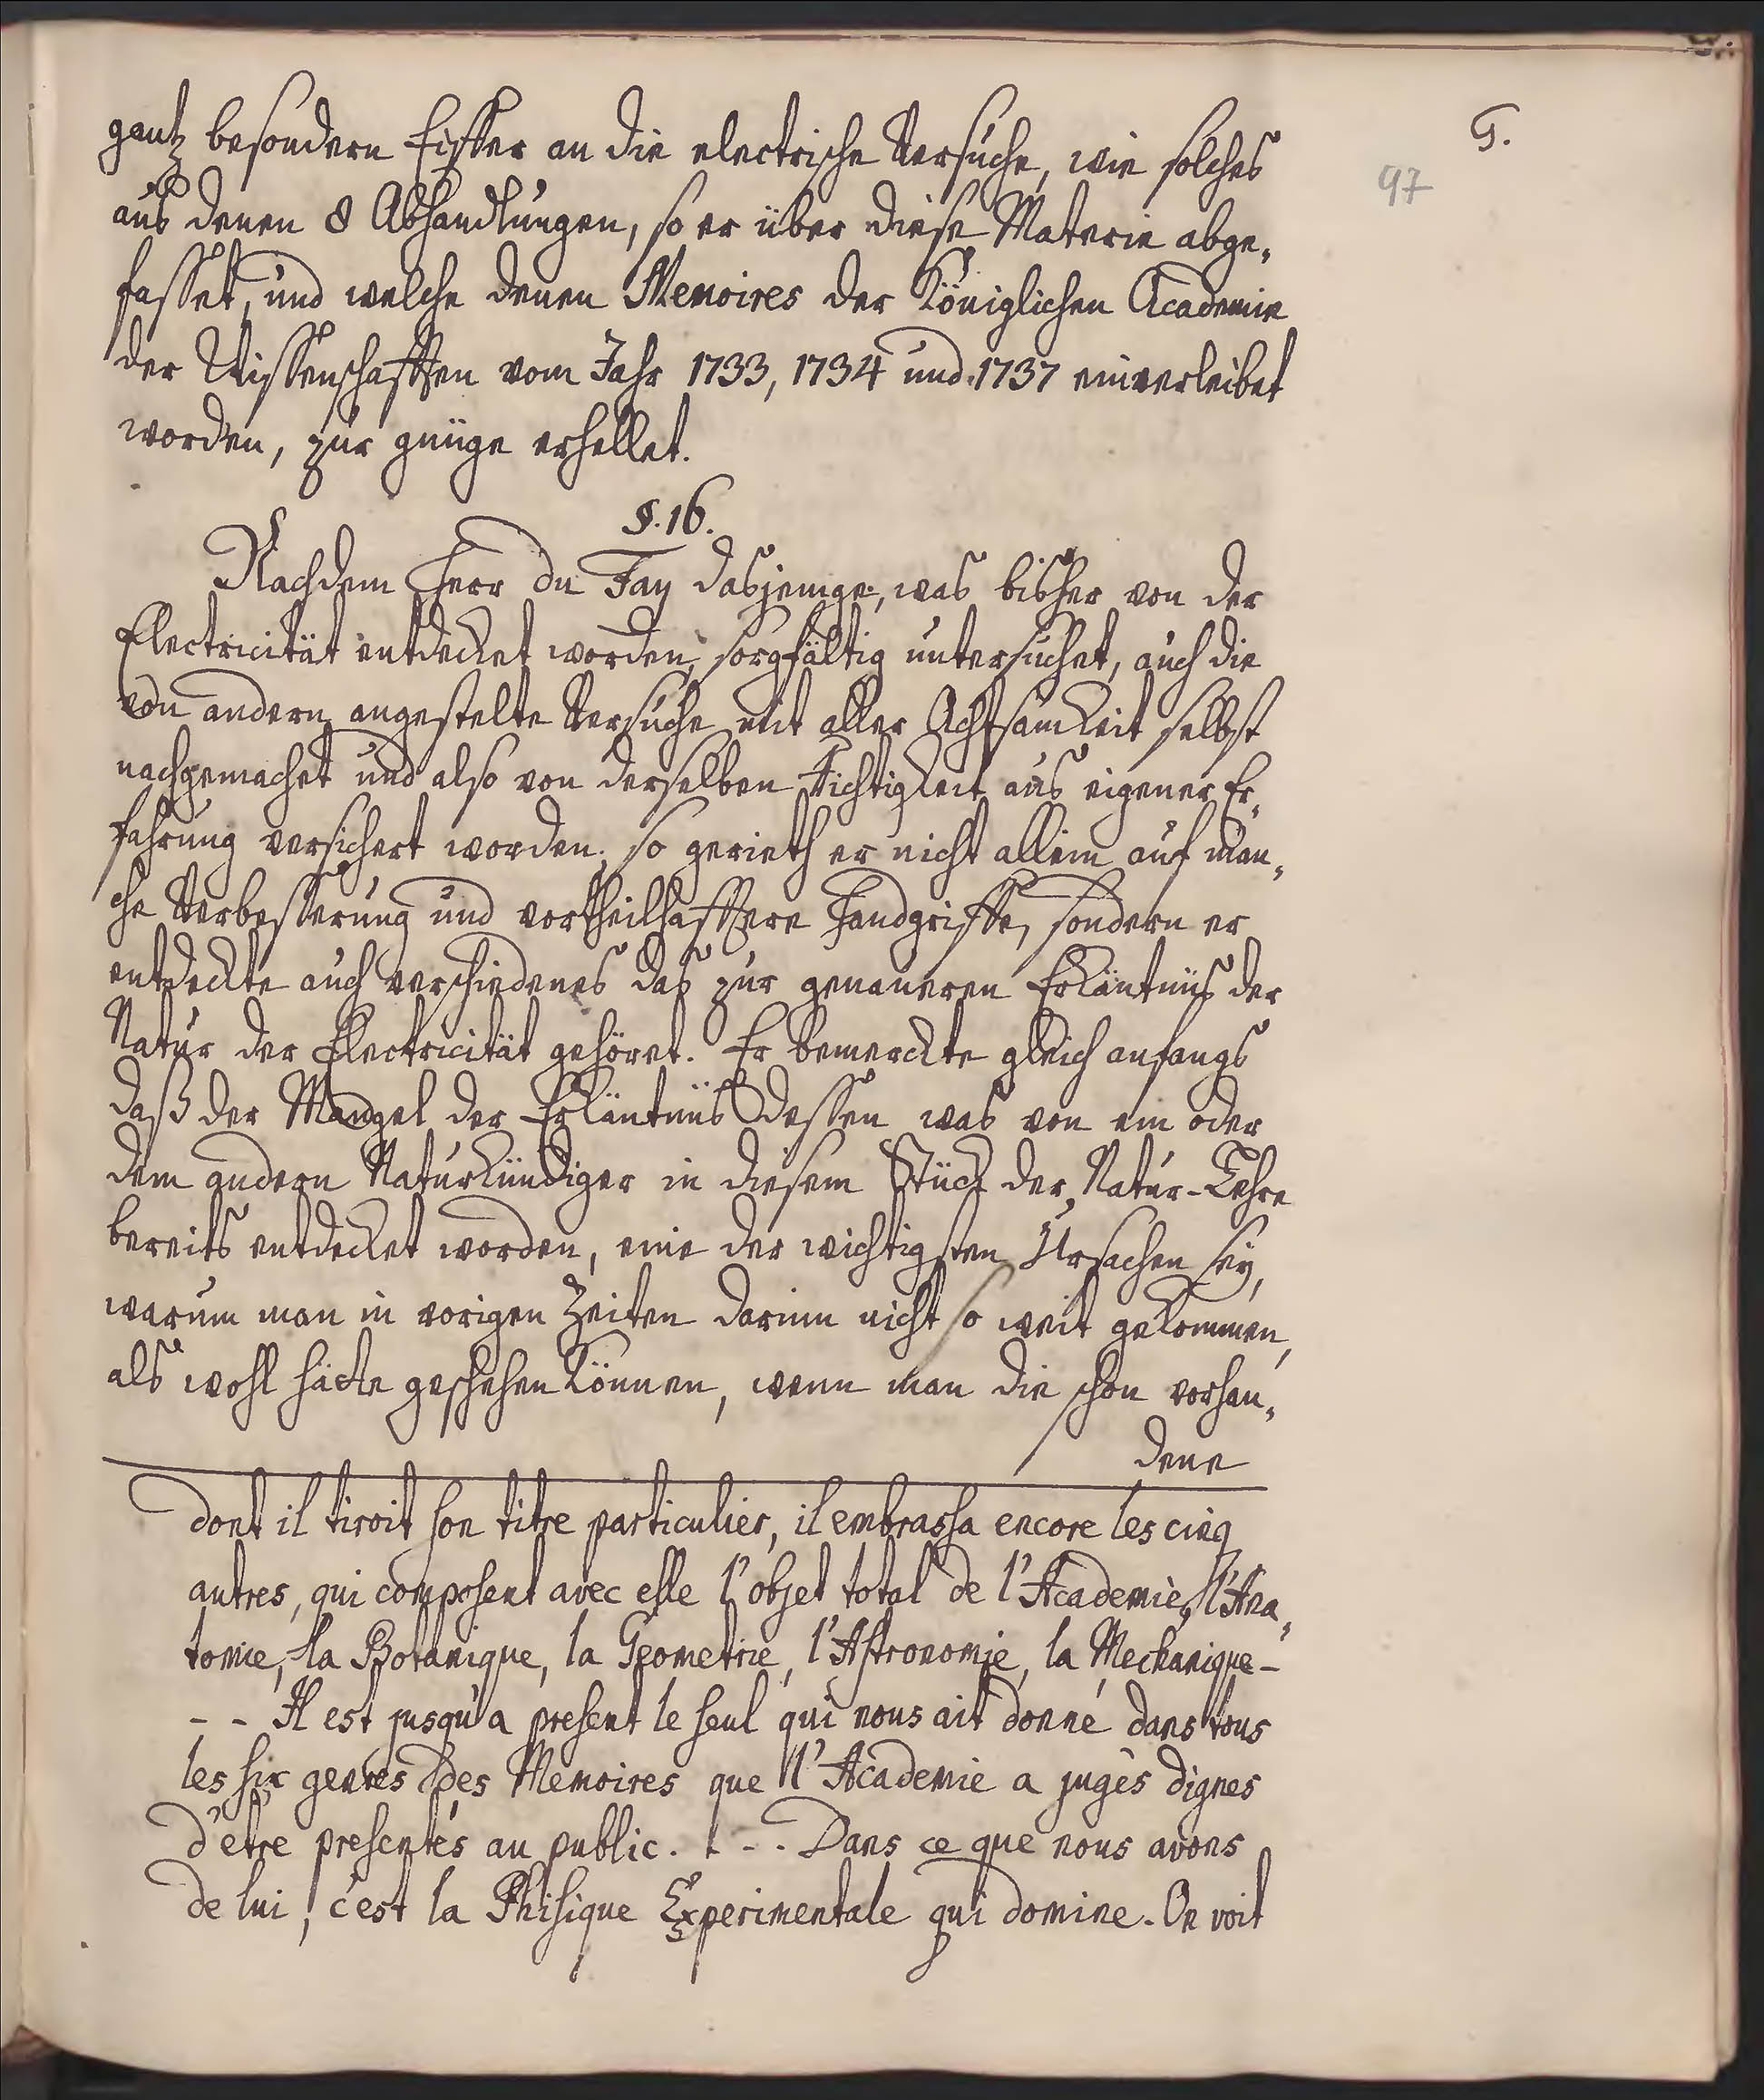 G.
97
gantz besondern Eiffer an die electrische Versuche, wie solches
aus denen 8 Abhandlungen, so er über diese Materie abge-
fasset, und welche denen Memoires der Königlichen Academie
der Wissenschafften vom Jahr 1733, 1734 und 1737 einverleibet
worden, zur gnüge erhellet.
§. 16.
Nachdem Herr du Fay dasjenige, was bisher von der
Electricität entdecket worden, sorgfältig untersuchet, auch die
von andern angestelte Versuche mit aller Achtsamkeit selbst
nachgemachet und also von derselben Richtigkeit aus eigener Er-
fahrung versichert worden; so gerieth er nicht allein auf man-
che Verbesserung und vortheilhafftere Handgriffe, sondern er
entdeckte auch verschiedenes das zur genaueren Erkäntnüs der
Natur der Electricität gehöret. Er bemerckte gleich anfangs
daß der Mangel der Erkäntnüs dessen was von ein oder
dem andern Naturkündiger in diesem Stück der Natur-Lehre
bereits entdecket worden, eine der wichtigsten Ursachen sey,
warum man in vorigen Zeiten darinn nicht so weit gekommen,
als wohl hätte geschehen können, wenn man die schon vorhan-
dene
dont il tiroit son titre particulier, il embrassa encore les cinq
autres, qui composent avec elle l'objet total de l'Academie, l'Ana-
tomie, la Botanique, la Geometrie, l'Astronomie, la Mechanique -
- - Il est jusqu'a present le seul qui nous ait donné dans tous
les six genres des Memoires que l'Academie a jugès dignes
d'etre presentés au public. - - - Dans ce que nous avons
de lui, c'est la Phisique Experimentale qui domine. On voit